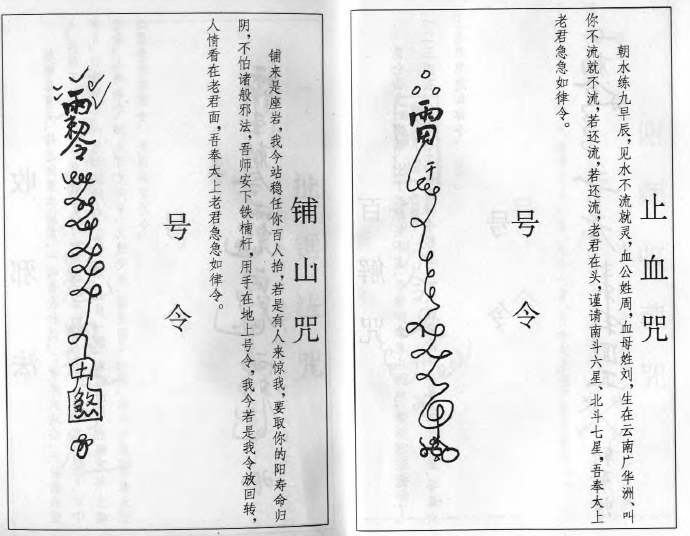 止血咒
朝水练九早辰，见水不流就灵，血公姓周，血母姓刘，生在云南广华洲、叫
你不流就不流，若还流，若还流，老君在头，谨请南斗六星、北斗七星，吾奉太上
老君急急如律令。
号令
铺山咒
铺来是座岩，我今站稳任你百人抬，若是有人来惊我，要取你的阳寿命归
阴，不怕诸般邪法，吾师安下铁楠杆，用手在地上号令，我今若是我令放回转，
人情看在老君面，吾奉太上老君急急如律令。
号令
田
煞